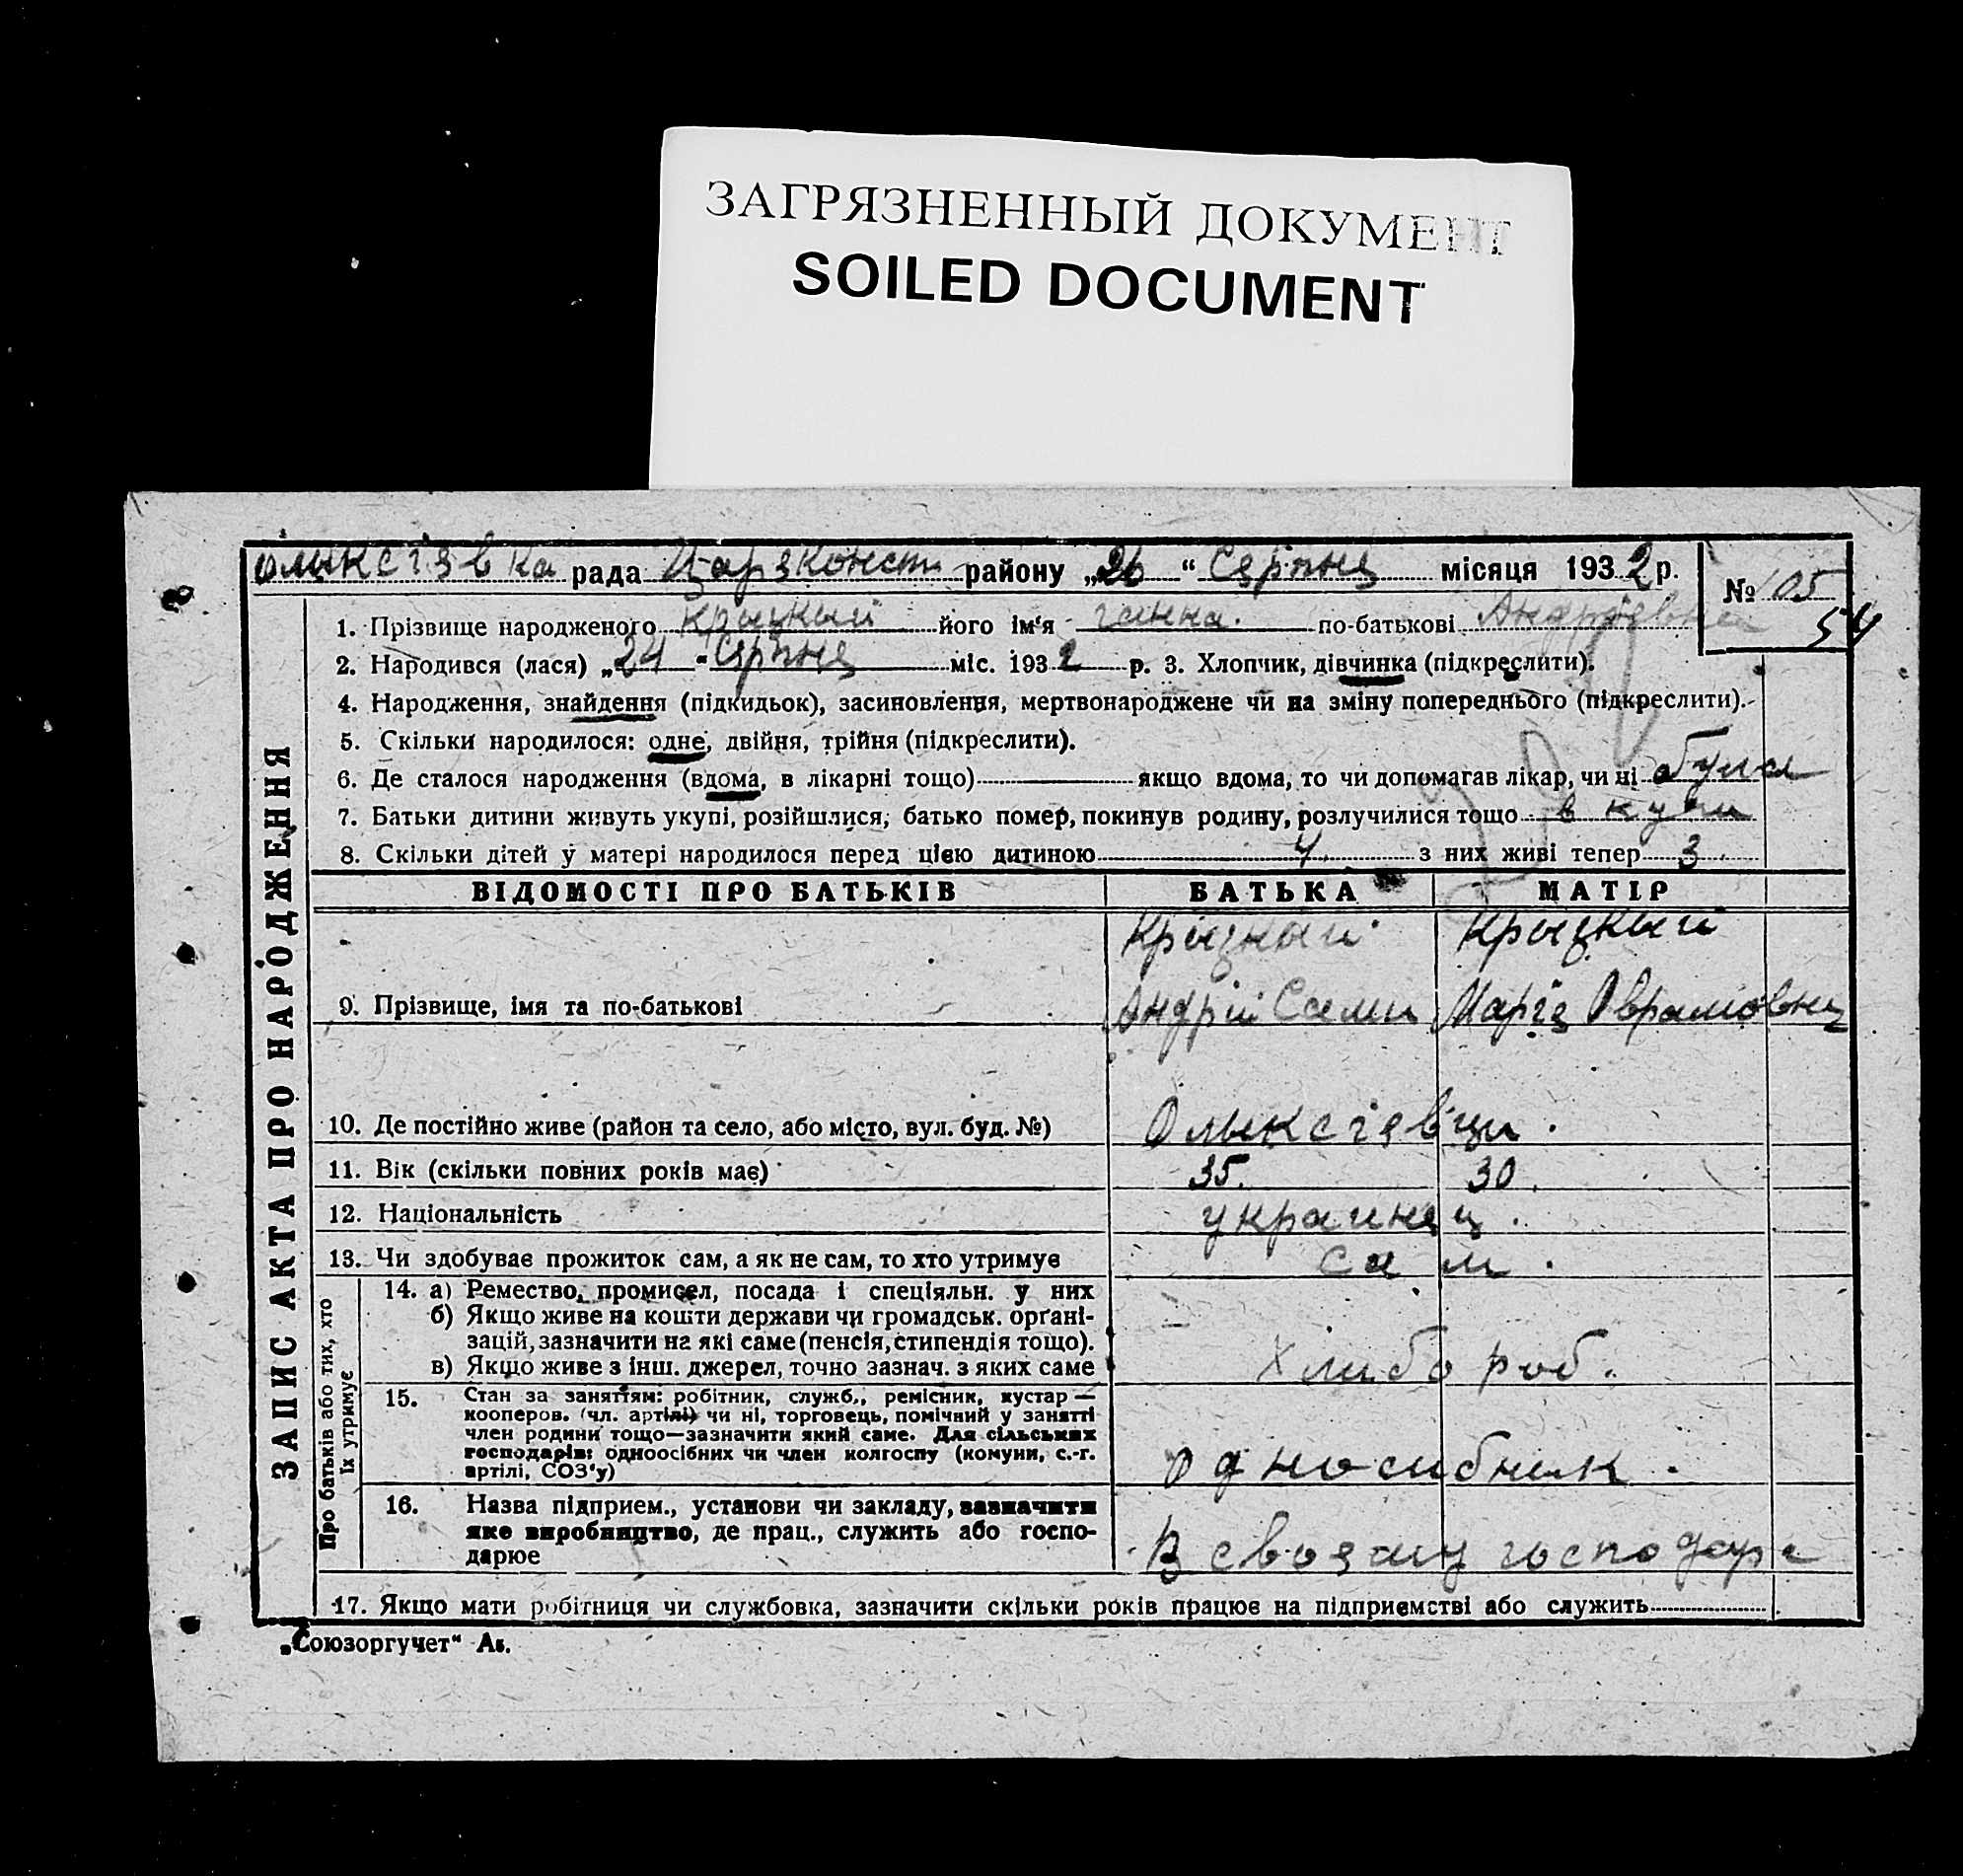 ЗАГРЯЗНЕННЫЙ ДОКУМЕНТ
SOILED DOCUMENT
ЗАПИС АКТА ПРО НАРОДЖЕННЯ
рада Царяконст району „26“ Серпня місяця 1932 р.
№ 105
54
1. Прізвище народженого Крыцкый його ім'я ганна. по-батькові Андріевна
2. Народився (лася) „24“ Серпня міс. 1932 р. 3. Хлопчик, дівчинка (підкреслити).
4. Народження, знайдення (підкидьок), засиновлення, мертвонароджене чи на зміну попереднього (підкреслити).
5. Скільки народилося: одне, двійня, трійня (підкреслити).
6. Де сталося народження (вдома, в лікарні тощо) якщо вдома, то чи допомагав лікар, чи ні
7. Батьки дитини живуть укупі, розійшлися, батько помер, покинув родину, розлучилися тощо в купи
8. Скільки дітей у матері народилося перед цією дитиною 4 з них живі тепер 3
ВІДОМОСТІ ПРО БАТЬКІВ БАТЬКА МАТІР
Крыцкый Крыцкый
9. Прізвище, імя та по-батькові Андрій Сами Марія Оврамовна
10. Де постійно живе (район та село, або місто, вул. буд. №) Олыксіявци.
11. Вік (скільки повних років має) 35. 30.
12. Національність украинец.
13. Чи здобуває прожиток сам, а як не сам, то хто утримує сам.
Про батьків або тих, хто їх утримує
14. а) Ремество, промисел, посада і спеціяльн. у них
б) Якщо живе на кошти держави чи громадськ. орґані-
зацій, зазначити на які саме (пенсія, стипендія тощо).
в) Якщо живе з інш. джерел, точно зазнач. з яких саме Хлибороб.
15. Стан за заняттям: робітник, служб., ремісник, кустар —
кооперов. (чл. артілі) чи ні, торговець, помічний у занятті
член родини тощо—зазначити який саме. Для сільських
господарів: одноосібних чи член колгоспу (комуни, с.-г.
артілі, СОЗ'у) односибник.
16. Назва підприєм., установи чи закладу, зазначити
яке виробництво, де прац., служить або госпо-
дарює В свояму господар
17. Якщо мати робітниця чи службовка, зазначити скільки років працює на підприємстві або служить
„Союзоргучет“ Ав.